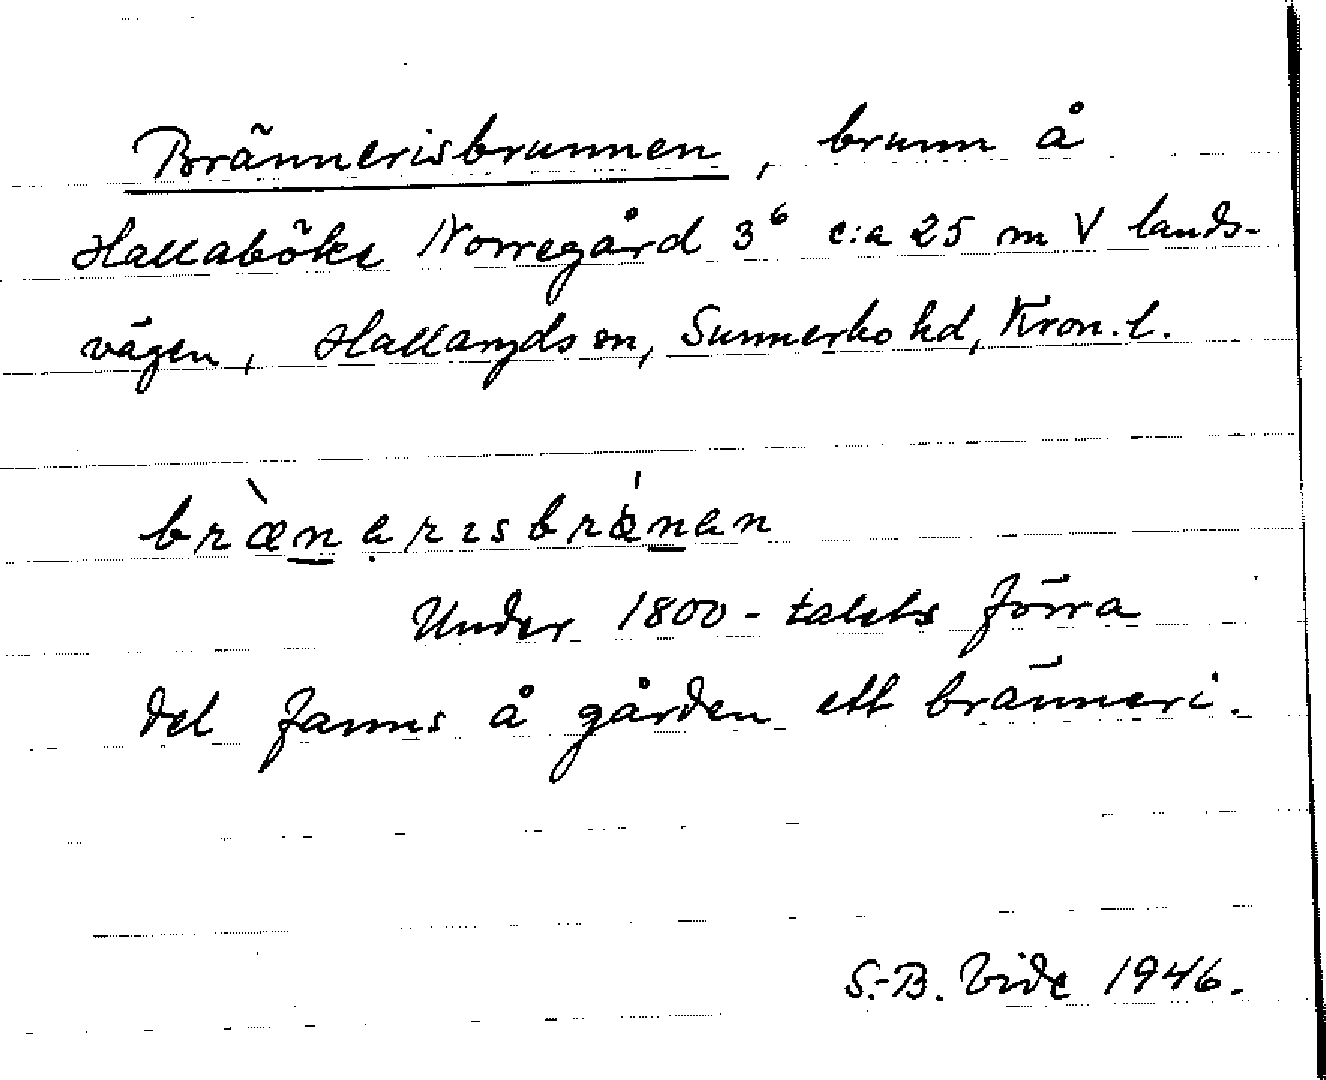 Brännerisbrunnen, brunn å
Hallaböke Norregård 3⁶ c:a 25 m V lands-
vägen, Hallaryds sn, Sunnerbo hd, Kron. l.
bræ̀nạrısbrǿnan
Under 1800-talets förra
del fanns å gården ett bränneri.
S.-B. Vide 1946.